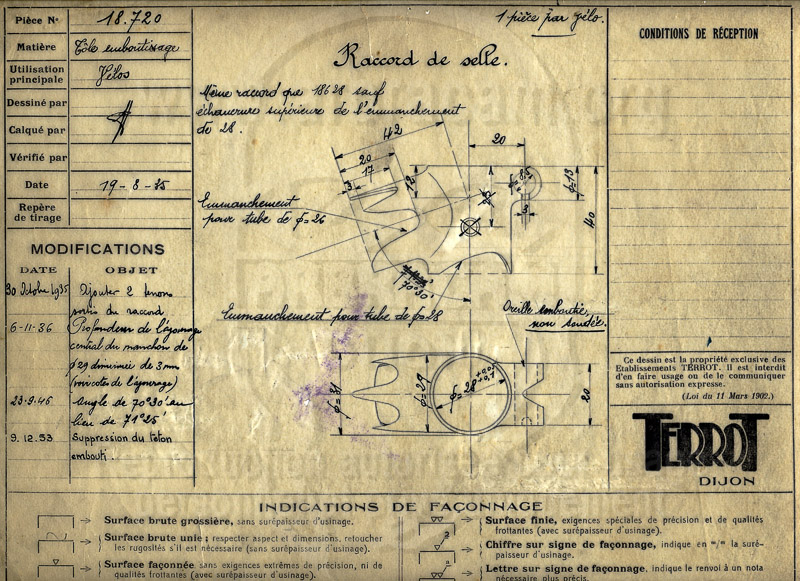 Pièce N° 18.720
Matière Tôle emboutissage
Utilisation principale Vélos
Dessiné par
Calqué par
Vérifié par
Date 19-8-35
Repère de tirage
MODIFICATIONS
DATE OBJET
30 Octobre 1935 Ajouter 2 tenons
du raccord
6-11-36 Profondeur de l'égougeage
central du manchon de
ϕ 29 diminuée de 3 mm
23-9-46 Angle de 70°30' au
lieu de 71°25'
9.12.53 Suppression du téton
embouti.
1 pièce par vélo.
Raccord de selle.
Même raccord que 18628 sauf
échancrure supérieure de l'emmanchement
de 28.
42
20
17
3
12
20
25
8,5
ϕ=13
40
3
Emmanchement
pour tube de ϕ=26
70°30'
Emmanchement pour tube de ϕ=28
Oreille emboutie,
non soudée.
ϕ=31
ϕ=29
ϕ=28 +0,05 +0,1
20
CONDITIONS DE RÉCEPTION
Ce dessin est la propriété exclusive des
Etablissements TERROT. Il est interdit
d'en faire usage ou de le communiquer
sans autorisation expresse.
(Loi du 11 Mars 1902.)
TERROT
DIJON
INDICATIONS DE FAÇONNAGE
Surface brute grossière, sans surépaisseur d'usinage.
Surface brute unie; respecter aspect et dimensions, retoucher
les rugosités s'il est nécessaire (sans surépaisseur d'usinage).
Surface façonnée sans exigences extrêmes de précision, ni de
qualités frottantes (avec surépaisseur d'usinage).
Surface finie, exigences spéciales de précision et de qualités
frottantes (avec surépaisseur d'usinage).
2
Chiffre sur signe de façonnage, indique en "/" la suré-
paisseur d'usinage.
a
Lettre sur signe de façonnage, indique le renvoi à un nota
nécessaire plus précis.